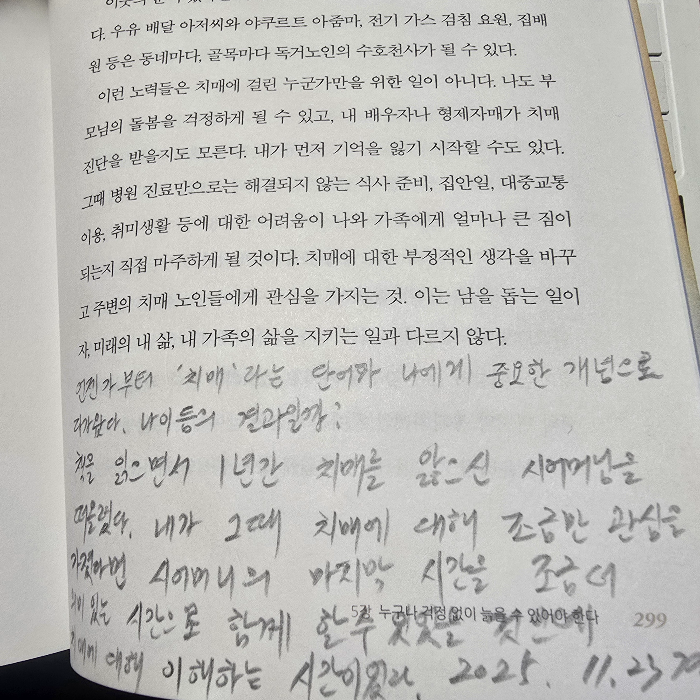 다. 우유 배달 아저씨와 야쿠르트 아줌마, 전기 가스 검침 요원, 집배
원 등은 동네마다, 골목마다 독거노인의 수호천사가 될 수 있다.
이런 노력들은 치매에 걸린 누군가만을 위한 일이 아니다. 나도 부
모님의 돌봄을 걱정하게 될 수 있고, 내 배우자나 형제자매가 치매
진단을 받을지도 모른다. 내가 먼저 기억을 잃기 시작할 수도 있다.
그때 병원 진료만으로는 해결되지 않는 식사 준비, 집안일, 대중교통
이용, 취미생활 등에 대한 어려움이 나와 가족에게 얼마나 큰 짐이
되는지 직접 마주하게 될 것이다. 치매에 대한 부정적인 생각을 바꾸
고 주변의 치매 노인들에게 관심을 가지는 것. 이는 남을 돕는 일이
자, 미래의 내 삶, 내 가족의 삶을 지키는 일과 다르지 않다.
언젠가부터 '치매'라는 단어가 나에게 중요한 개념으로
다가왔다. 나이듦의 결과일까?
책을 읽으면서 1년간 치매를 앓으신 시어머님을
떠올렸다. 내가 그때 치매에 대해 조금만 관심을
가졌다면 시어머니의 마지막 시간을 조금 더
있는 시간으로 함께 할 수 있었을
5장 누구나 걱정 없이 늙을 수 있어야 한다 299
대해 이해하는 시간이었다. 2025. 11. 23